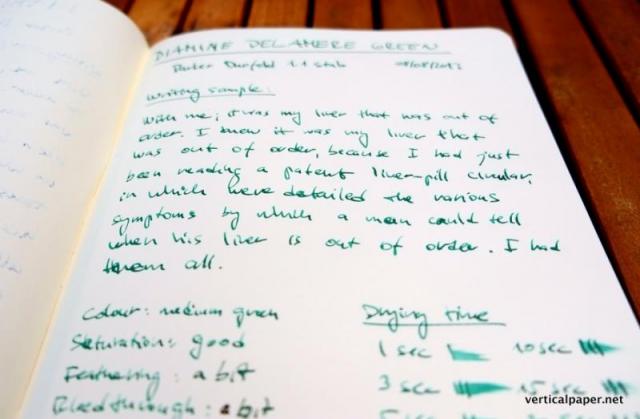 DIAMINE DELAMERE GREEN
Parker Duofold 1.1 stub
Writing sample:
With me; it was my liver that was out of
order. I knew it was my liver that
was out of order, because I had just
been reading a patent liver-pill circular,
in which were detailed the various
symptoms by which a man could tell
when his liver is out of order. I had
them all.
Colour: medium green
Saturation: good
Feathering: a bit
Bleedthrough: a bit
Drying time
1 sec 10 sec
3 sec 15 sec
verticalpaper.net